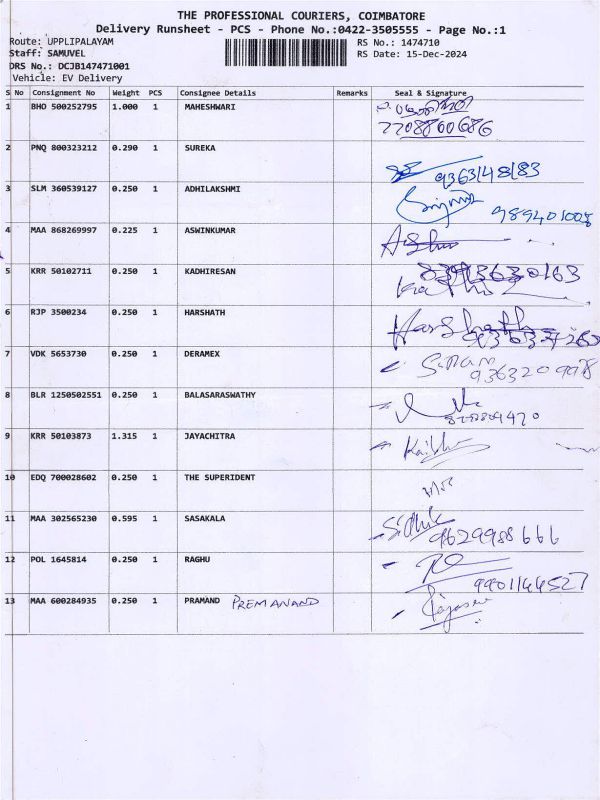 THE PROFESSIONAL COURIERS, COIMBATORE
Delivery Runsheet - PCS - Phone No.:0422-3505555 - Page No.:1
Route: UPPLIPALAYAM RS No.: 1474710
Staff: SAMUVEL RS Date: 15-Dec-2024
DRS No.: DCJB147471001
Vehicle: EV Delivery
S No Consignment No Weight PCS Consignee Details Remarks Seal & Signature
1 BHO 500252795 1.000 1 MAHESHWARI
7708800686
2 PNQ 800323212 0.290 1 SUREKA 9363148183
3 SLM 360539127 0.250 1 ADHILAKSHMI
4 MAA 868269997 0.225 1 ASWINKUMAR
5 KRR 50102711 0.250 1 KADHIRESAN
6 RJP 3500234 0.250 1 HARSHATH Harshath
7 VDK 5653730 0.250 1 DERAMEX 9363209978
8 BLR 1250502551 0.250 1 BALASARASWATHY
9 KRR 50103873 1.315 1 JAYACHITRA
10 EDQ 700028602 0.250 1 THE SUPERIDENT
11 MAA 302565230 0.595 1 SASAKALA 9629988666
12 POL 1645814 0.250 1 RAGHU 9901144527
13 MAA 600284935 0.250 1 PRAMAND PREMANAND